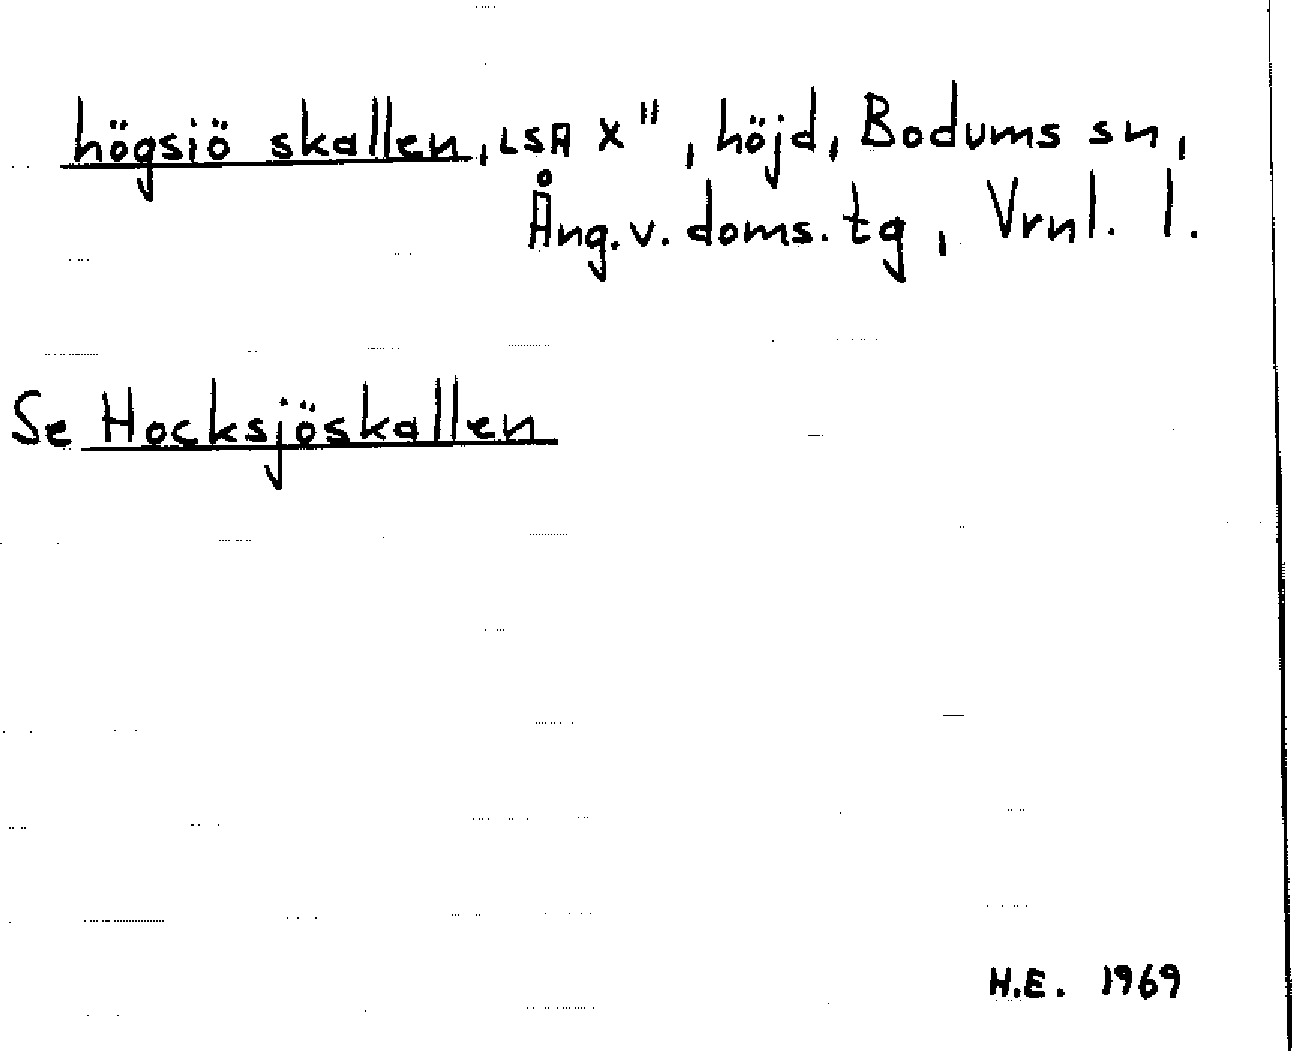 högsiö skallen, LSA X", höjd, Bodums sn,
Ång. v. doms. tg, Vrnl. l.
Se Hocksjöskallen
H.E. 1969